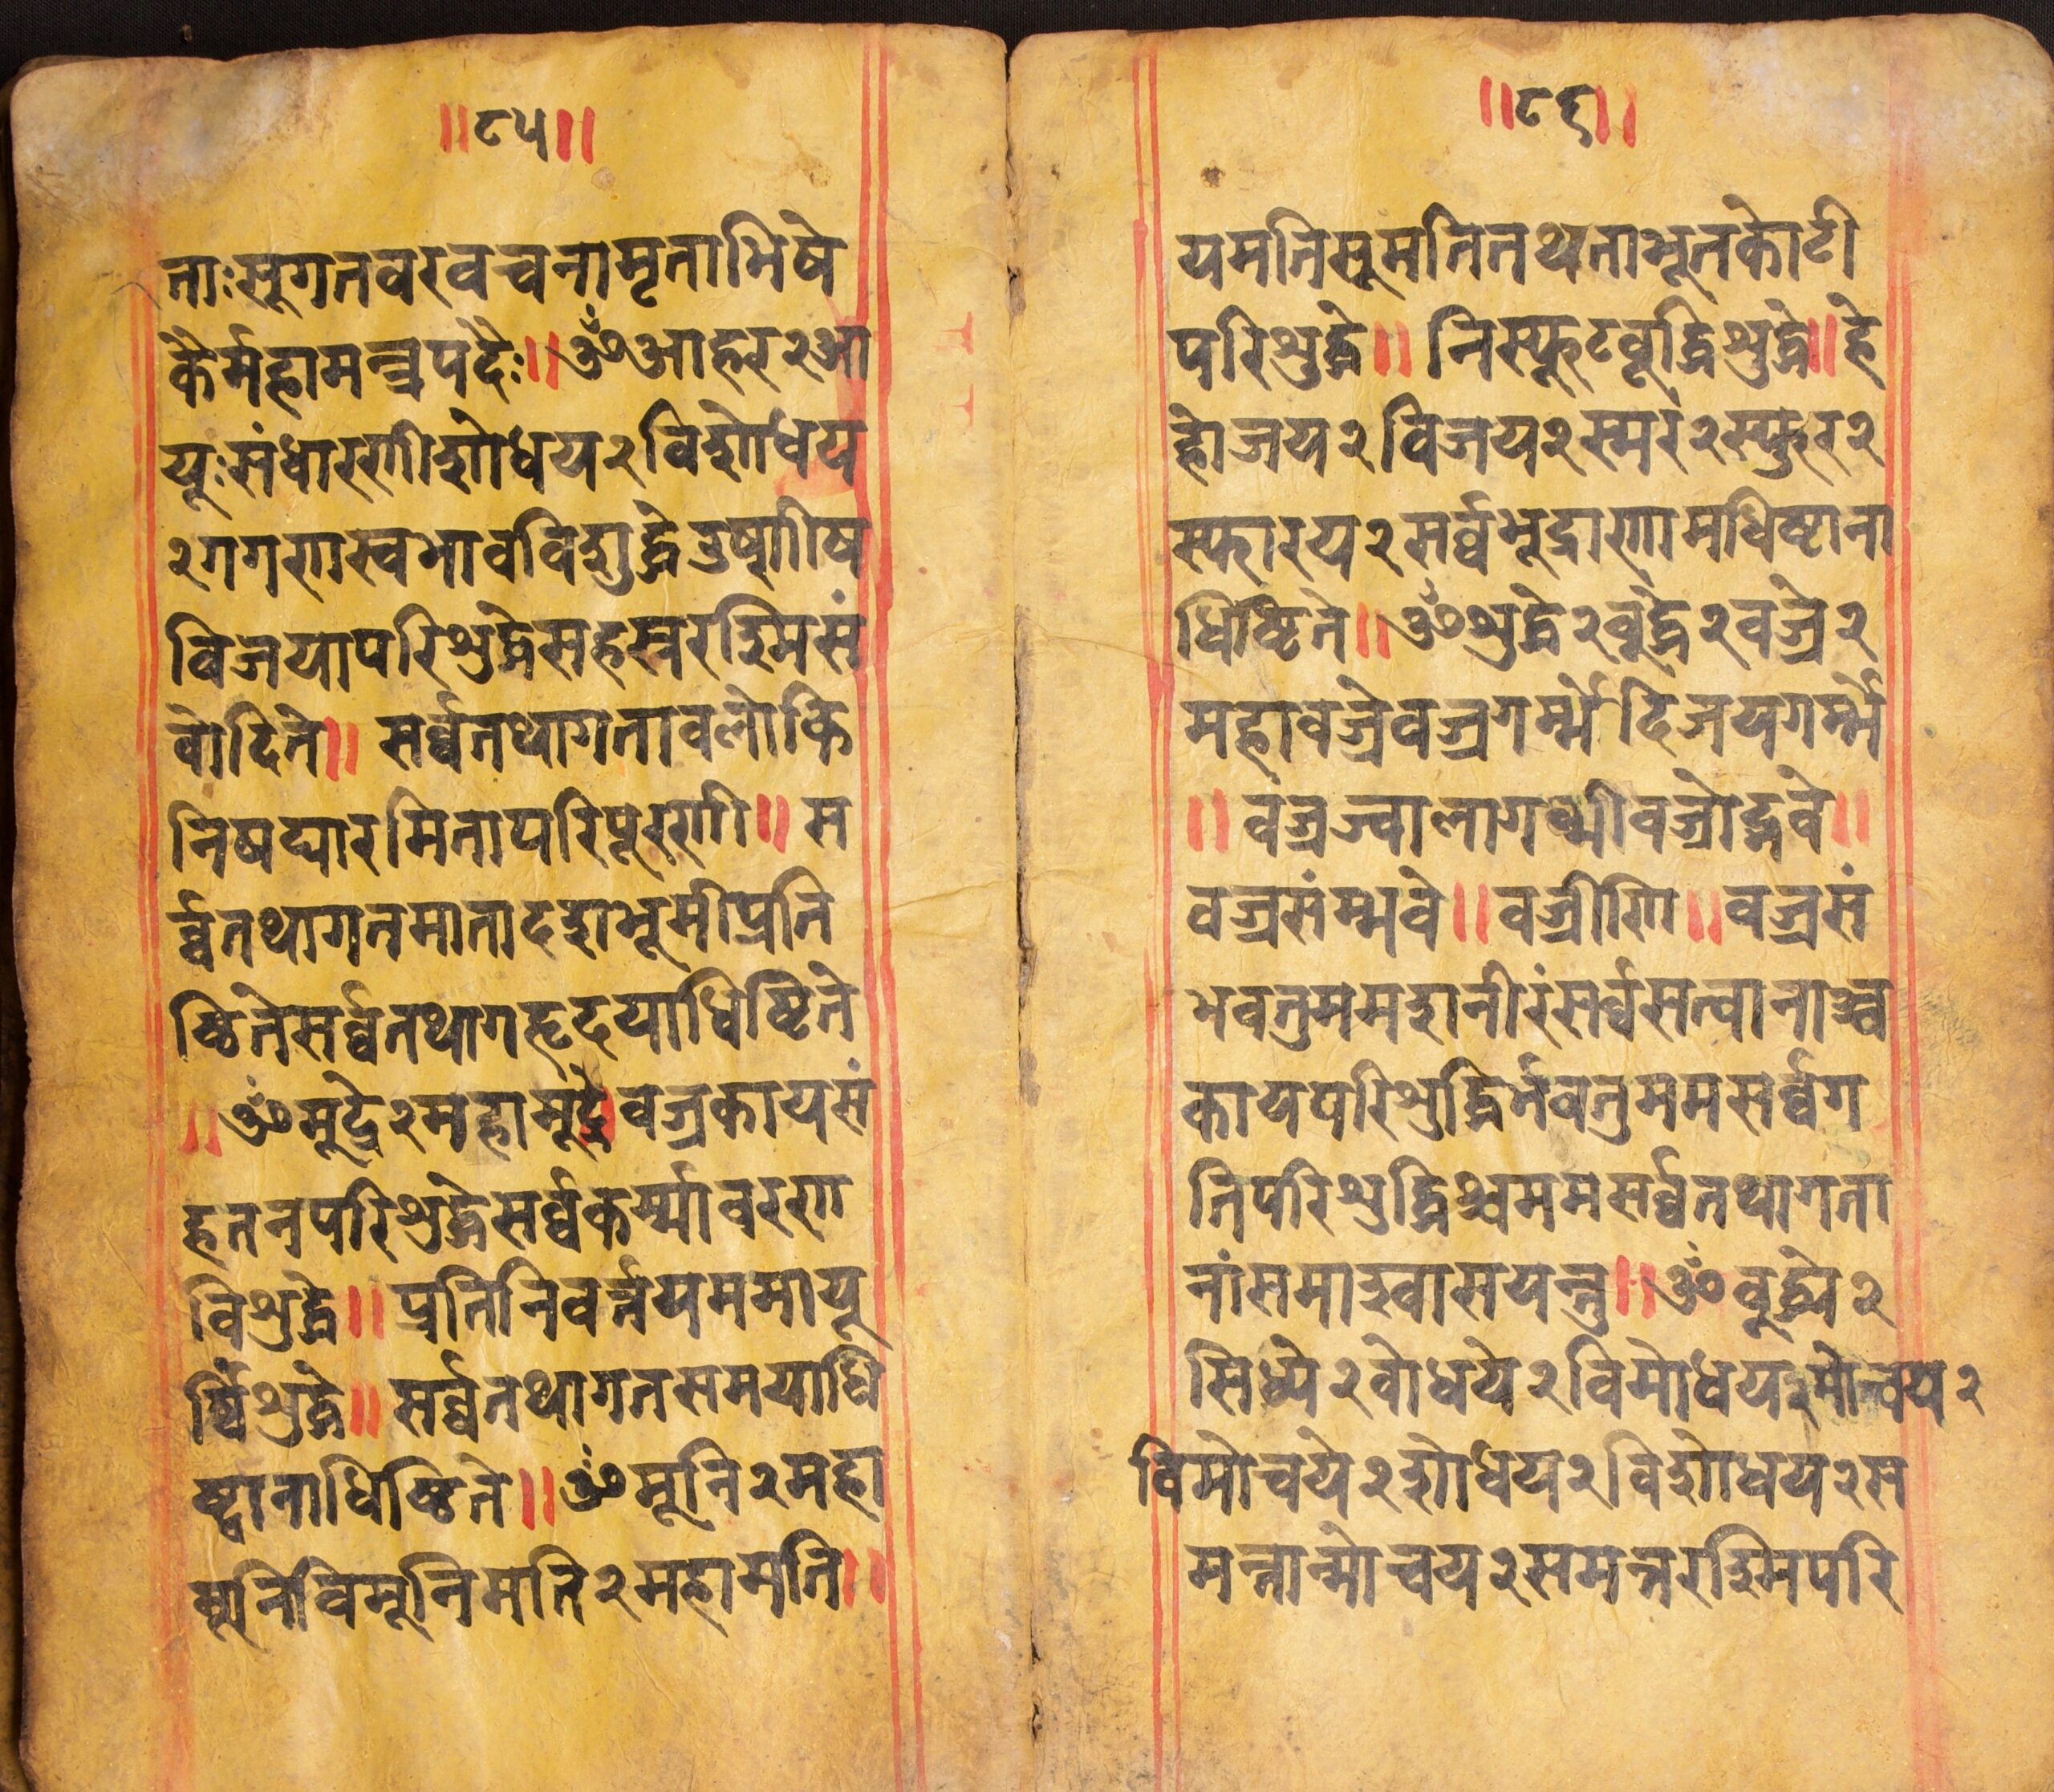 ॥८५॥
ताःसूगतवरवचनामृताभिषे
कैर्महामन्त्रपदैः॥ॐआहर२आ
यूःसंधारणीशोधय२विशोधय
२गगणस्वभावविशुद्धेउष्णीष
विजयापरिशुद्धेसहस्ररश्मिसं
वोदिते॥ सर्व्वतथागतावलोकि
निषद्यारमितापरिपूरणी॥ स
र्व्वतथागतमातादशभूमीप्रति
ष्ठितेसर्व्वतथागहृदयाधिष्टिते
॥ॐमूद्रे२महामूद्रेवज्रकायसं
हतनपरिशुद्धेसर्व्वकर्म्मावरण
विशुद्धे॥ प्रतिनिवर्त्तयममायू
र्व्विशुद्धे॥ सर्व्वतथागतसमयाधि
ष्ठानाधिष्ठिते॥ॐमूनि२महा
मूनिविमूनिमति२महामति॥
॥८६॥
यमतिसूमतितथताभूतकोटी
परिशुद्धे॥ निस्फूटवूद्धिशुद्धे॥हे
होजय२विजय२स्मर२स्फुर२
स्फारय२सर्व्वभूद्राणामधिष्टाना
धिष्टिते॥ॐशुद्धे२वूद्धे२वज्रे२
महावज्रेवज्रगर्म्भेदिजयगर्म्भे
॥ वज्रज्वालागर्भीवज्रोद्भवे॥
वज्रसंम्भवे॥वज्रीणि॥वज्रसं
भवतुममशनीरंसर्व्वसत्वानाञ्च
कायपरिशुद्धिर्भवतुममसर्व्वग
तिपरिशुद्धिश्चममसर्व्वतथागता
नांसमाश्वासयन्तु॥ॐवूद्ध्ये२
सिध्ये२वोधये२विमोधय२मोचय२
विमोचये२शोधय२विशोधय२स
मन्तान्मोचय२समन्तरश्मिपरि